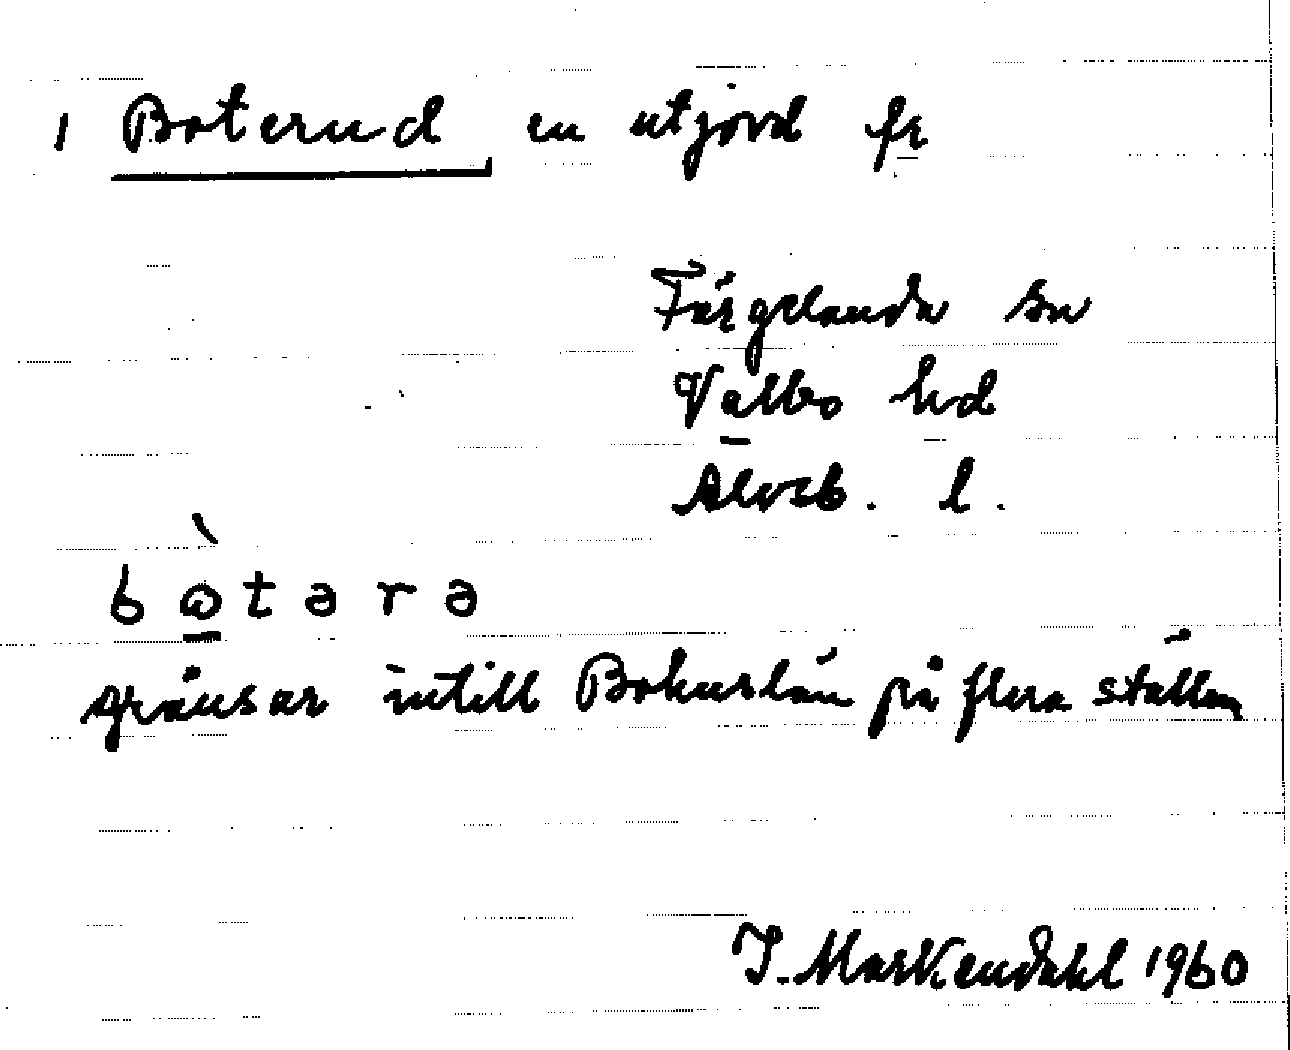 1 Boterud en utjord fr
Färgelanda sn
Valbo hd
Älvsb. l.
bòtərə
gränsar intill Bohuslän på flera ställen
J. Markendahl 1960